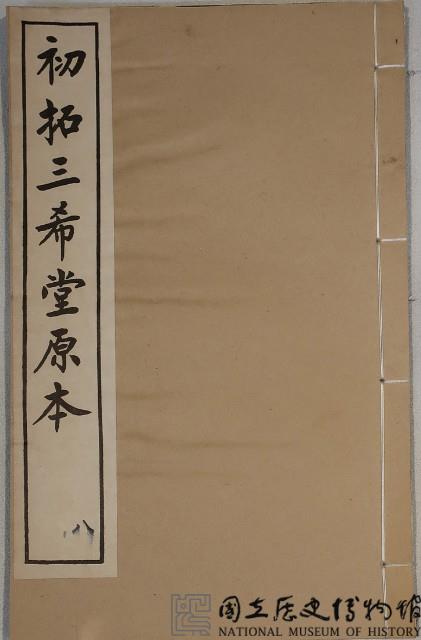 初拓三希堂原本
八
國立歷史博物館
NATIONAL MUSEUM OF HISTORY